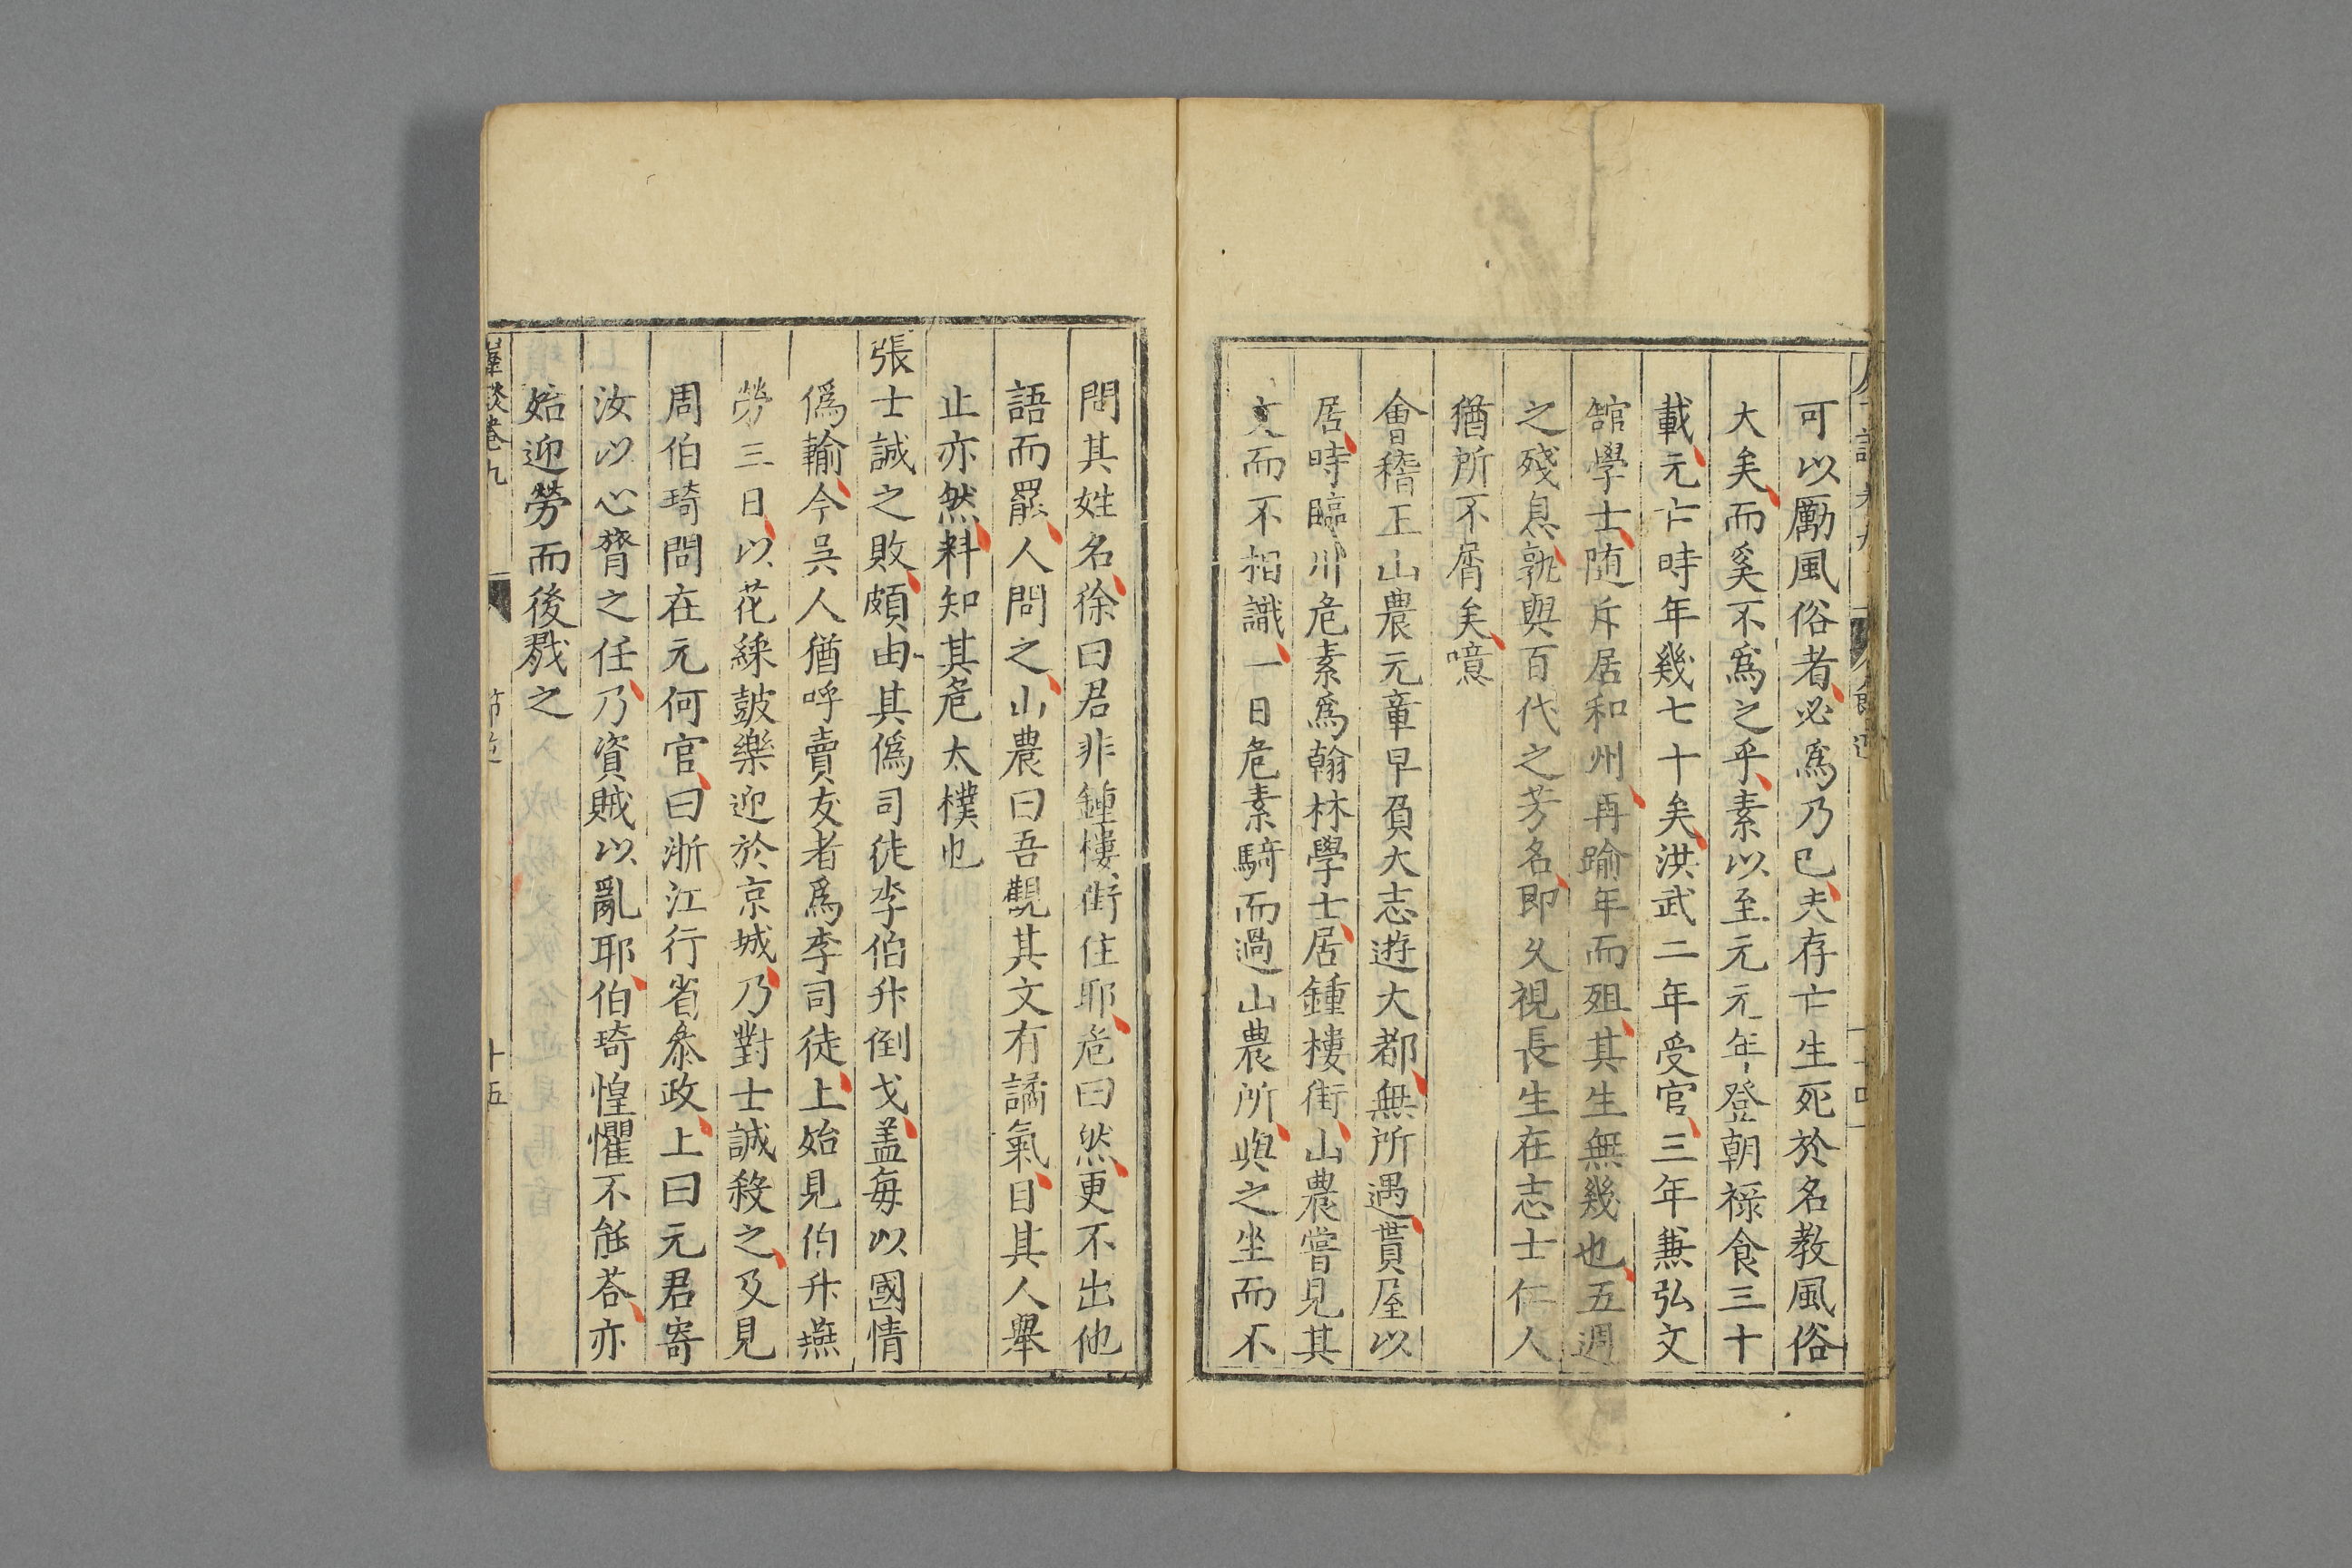 可以勵風俗者必爲乃已夫存亡生死於名教風俗
大矣而奚不爲之乎素以至元元年登朝祿食三十
載元亡時年幾七十矣洪武二年受官三年兼弘文
舘學士随斥居和州再踰年而殂其生無幾也五週
之殘息孰與百代之芳名即乆視長生在志士仁人
猶所不屑矣噫
會稽王山農元章早負大志遊大都無所遇貰屋以
居時臨川危素爲翰林學士居鍾樓街山農嘗見其
文而不相識一日危素騎而過山農所與之坐而不
問其姓名徐曰君非鍾樓街住耶危曰然更不出他
語而罷人問之山農曰吾觀其文有譎氣目其人舉
止亦然料知其危太樸也
張士誠之敗頗由其僞司徒李伯升倒戈盖每以國情
僞輸今吳人猶呼賣友者爲李司徒上始見伯升燕
勞三日以花綵鼓樂迎於京城乃對士誠殺之及見
周伯琦問在元何官曰浙江行省叅政上曰元君寄
汝以心膂之任乃資賊以亂耶伯琦惶懼不能荅亦
始迎勞而後戮之
卷九
十五